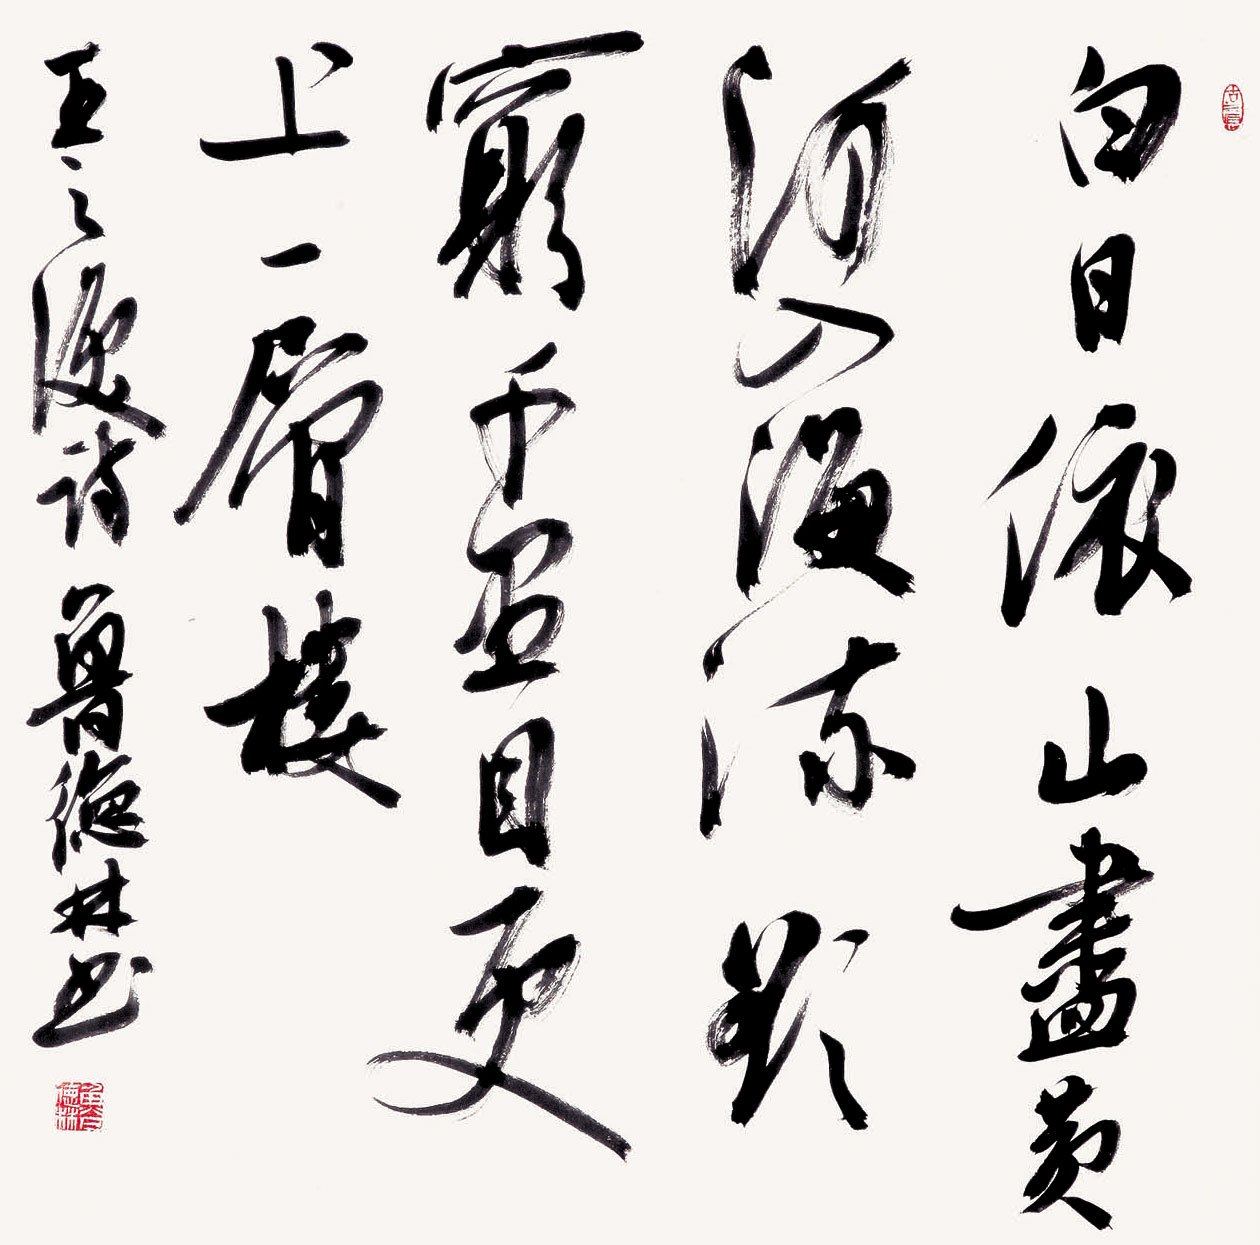 白日依山盡黄
河入海流欲
窮千里目更
上一層樓
王之渙詩 魯德林書